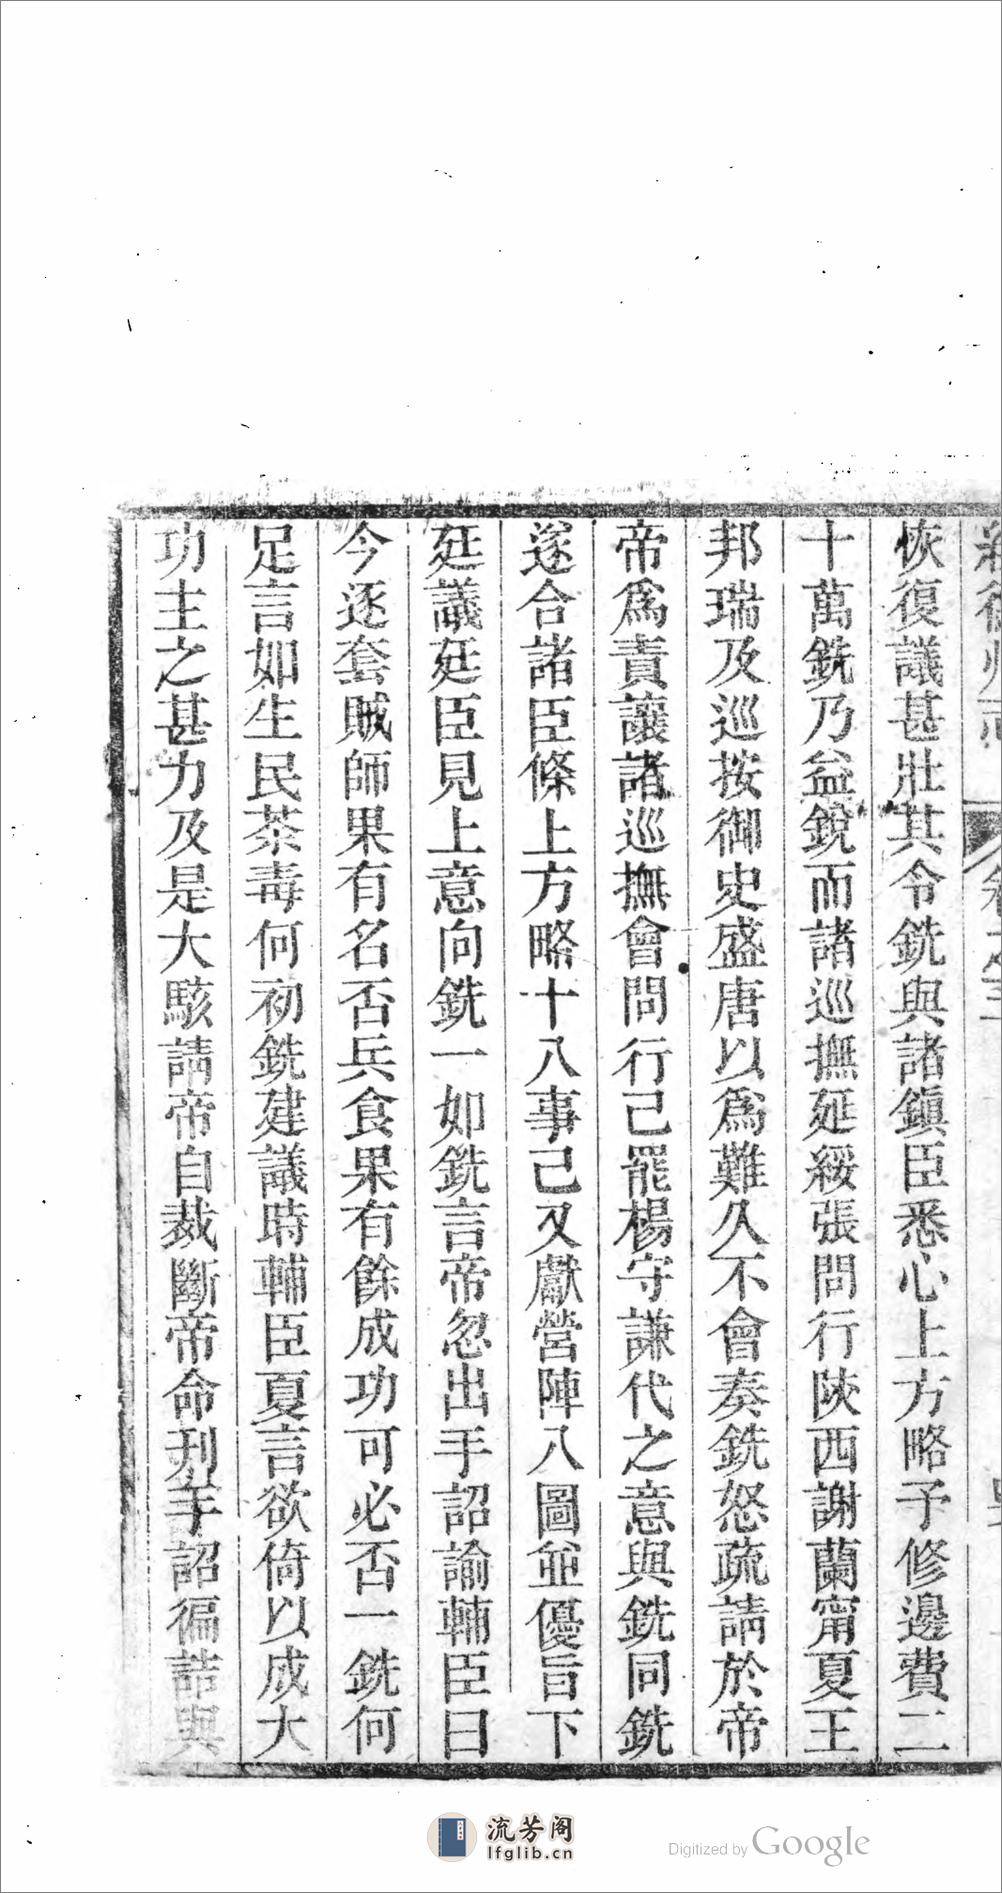 恢復議甚壯其令銑與諸鎮臣悉心上方略予修邊費二
十萬銑乃益銳而諸巡撫延綏張問行陝西謝蘭甯夏王
邦瑞及巡按御史盛唐以爲難久不會奏銑怒疏請於帝
帝爲責讓諸巡撫會問行已罷楊守謙代之意與銑同銑
遂合諸臣條上方略十八事已又獻營陣八圖並優旨下
廷議廷臣見上意向銑一如銑言帝忽出手詔諭輔臣曰
今逐套賊師果有名否兵食果有餘成功可必否一銑何
足言如生民荼毒何初銑建議時輔臣夏言欲倚以成大
功主之甚力及是大駭請帝自裁斷帝命刋手詔徧諮與
流芳阁
lfglib.cn
Digitized by Google